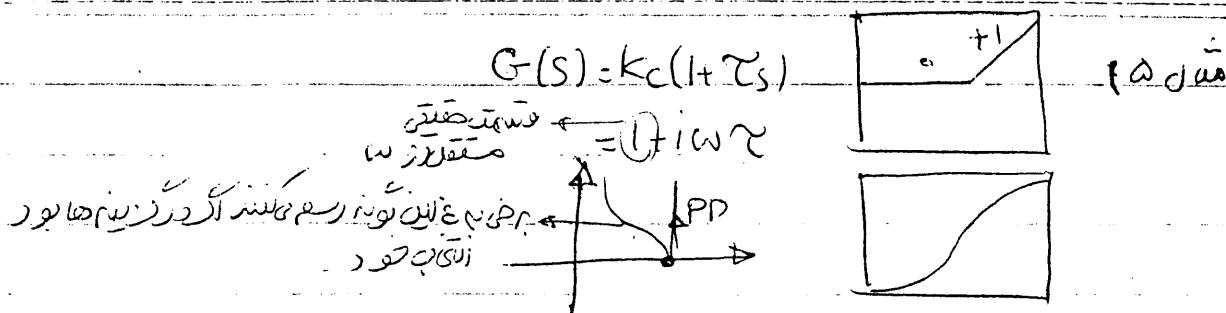 مثال ۱۵
G(s) = Kc(1+τs)
0 +1
= 1 + iωτ
قسمت حقیقی
مستقل از ω
PD
برخی به غ این گونه رسم می‌کنند اگر در گزینه ها بود
انتخاب شود